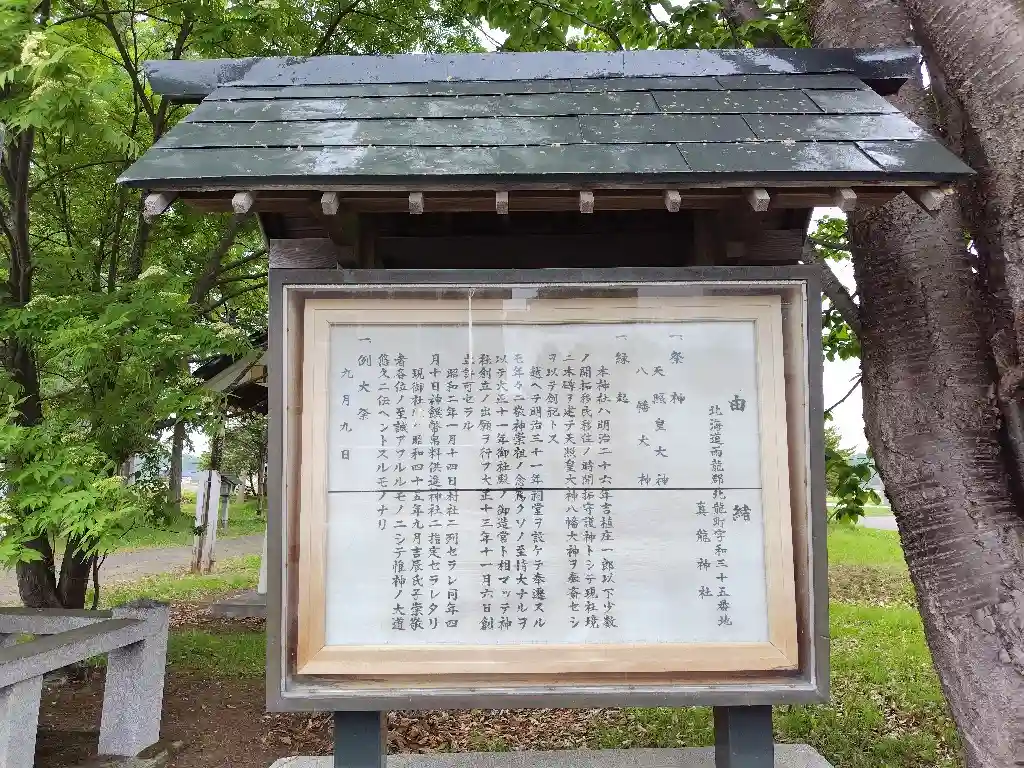 由緒
北海道雨龍郡北龍町字和三十五番地
真龍神社
一祭神
天照皇大神
八幡大神
一縁起
本神社ハ明治二十六年吉植庄一郎以下少数
ノ開拓移民移住ノ時開拓守護神トシテ現社境
ニ木碑ヲ建テ天照皇大神八幡大神ヲ奉斎セシ
ヲ以テ創祀トス
越ヘテ明治三十一年祠堂ヲ設ケテ奉遷スル
モ年々ニ敬神崇祖ノ念篤クソノ至情大ナルヲ
以テ大正十一年御社殿ノ御造営ト相マッテ神
社創立ノ出願ヲ行フ大正十三年十一月六日創
立許可セラル
昭和二年一月十四日村社ニ列セラレ同年四
月十日神饌幣帛料供進神社ニ指定セラレタリ
現御社 ハ昭和四十五年九月吉辰氏子崇敬
者各位ノ至誠アフルルモノニシテ惟神ノ大道
悠久ニ伝ヘントスルモノナリ
一例大祭
九月九日